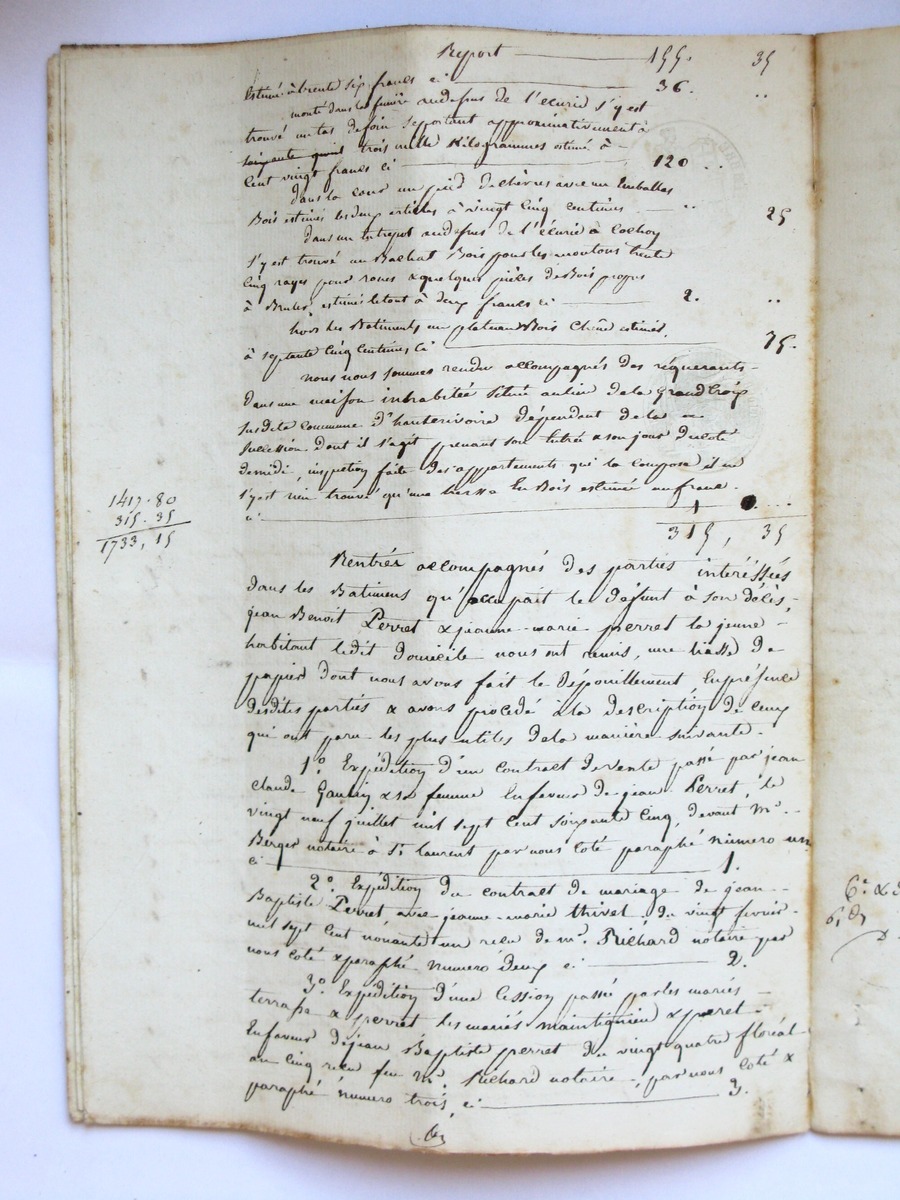 Report — 155. 35
Estimé à trente six francs ci — 36. ..
monté dans la feniere audessus de l'écurie s'y est
trouvé un tas de foin se portant approximativement à
trois mille Kilogrammes estimé à —
Cent vingt francs ci — 120 ..
dans la cour un pied de chèvres avec un Emballes
Bois estimés les deux articles à vingt cinq centimes — .. 25
dans un Entrepot audessus de l'écurie à Cochon
s'y est trouvé un Bachat Bois pour les moutons trente
cinq rayes pour roues & quelques pièces de Bois propres
à Bruler, estimés le tout à deux francs ci — 2. ..
hors les Batiments un plateau Bois Chêne estimé
à septante cinq Centimes ci — 75.
nous nous sommes rendu accompagnés des réquerants -
dans une maison inhabitée située au lieu de la Grand Croix
susdite commune d'hauterivoire dépendant de la
succession dont il s'agit prenant son Entrée & son jour du coté
de midi, inspection faite des appartements qui la compose il ne
s'y est rien trouvé qu'une Bois estimée un franc.
ci — 1 ...
315, 35
1417. 80
315. 35
1733, 15
Rentrés accompagnés des parties intéréssées
dans les Batimens qu'occupait le défunt à son décès,
jean Benoit Perret & jeanne-marie perret la jeune -
habitant ledit domicile nous ont remis, une liasse de
papier dont nous avons fait le dépouillement En présence
desdites parties & avons procédé à la description de ceux
qui ont paru les plus utiles de la manière suivante -
1° Expédition d'un contract de vente passé par jean
claude & sa femme En faveur de jean Perret, le
vingt neuf juillet mil sept Cent soixante Cinq, devant Mr. -
Berger notaire à St laurent par nous Coté paraphé numéro un
ci — 1.
2° Expédition du contract de mariage de jean -
Baptiste Perret avec jeanne-marie thivel du vingt fevrier -
mil sept Cent nonante un reçu de mr. Richard notaire par
nous coté & paraphé numero deux ci — 2.
3° Expédition d'une Cession passé par les mariés -
terrasse & perret les mariés & peret -
En faveur de jean Baptiste perret du vingt quatre floréal
an Cinq reçu feu Mr. Richard notaire, par nous Coté &
paraphé numero trois, ci — 3.